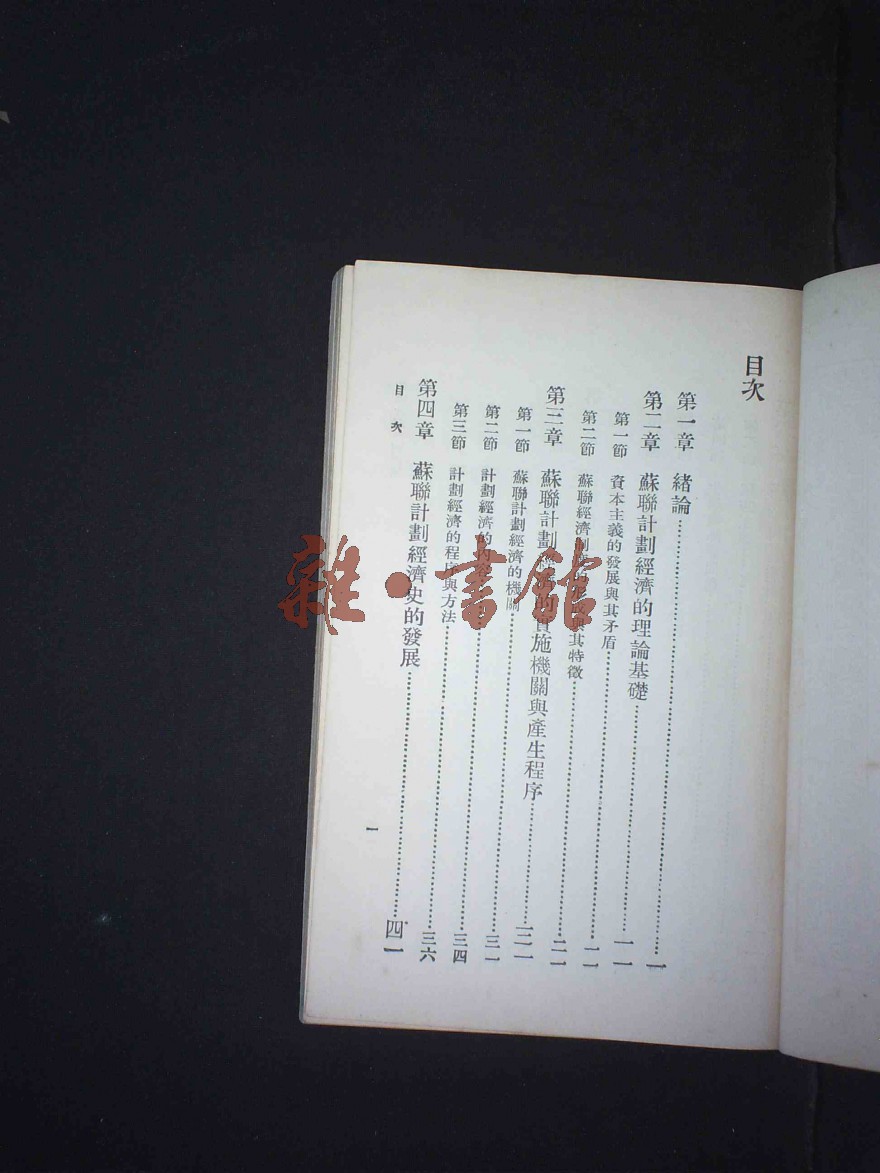 目次
第一章 緒論……一
第二章 蘇聯計劃經濟的理論基礎……一一
第一節 資本主義的發展與其矛盾……一一
第二節 蘇聯經濟制度的與其特徵……二一
第三章 蘇聯計劃經濟的實施機關與產生程序……三一
第一節 蘇聯計劃經濟的機關……三一
第二節 計劃經濟的內容……三四
第三節 計劃經濟的程序與方法……三六
第四章 蘇聯計劃經濟史的發展……四一
目次
一
雜·書館